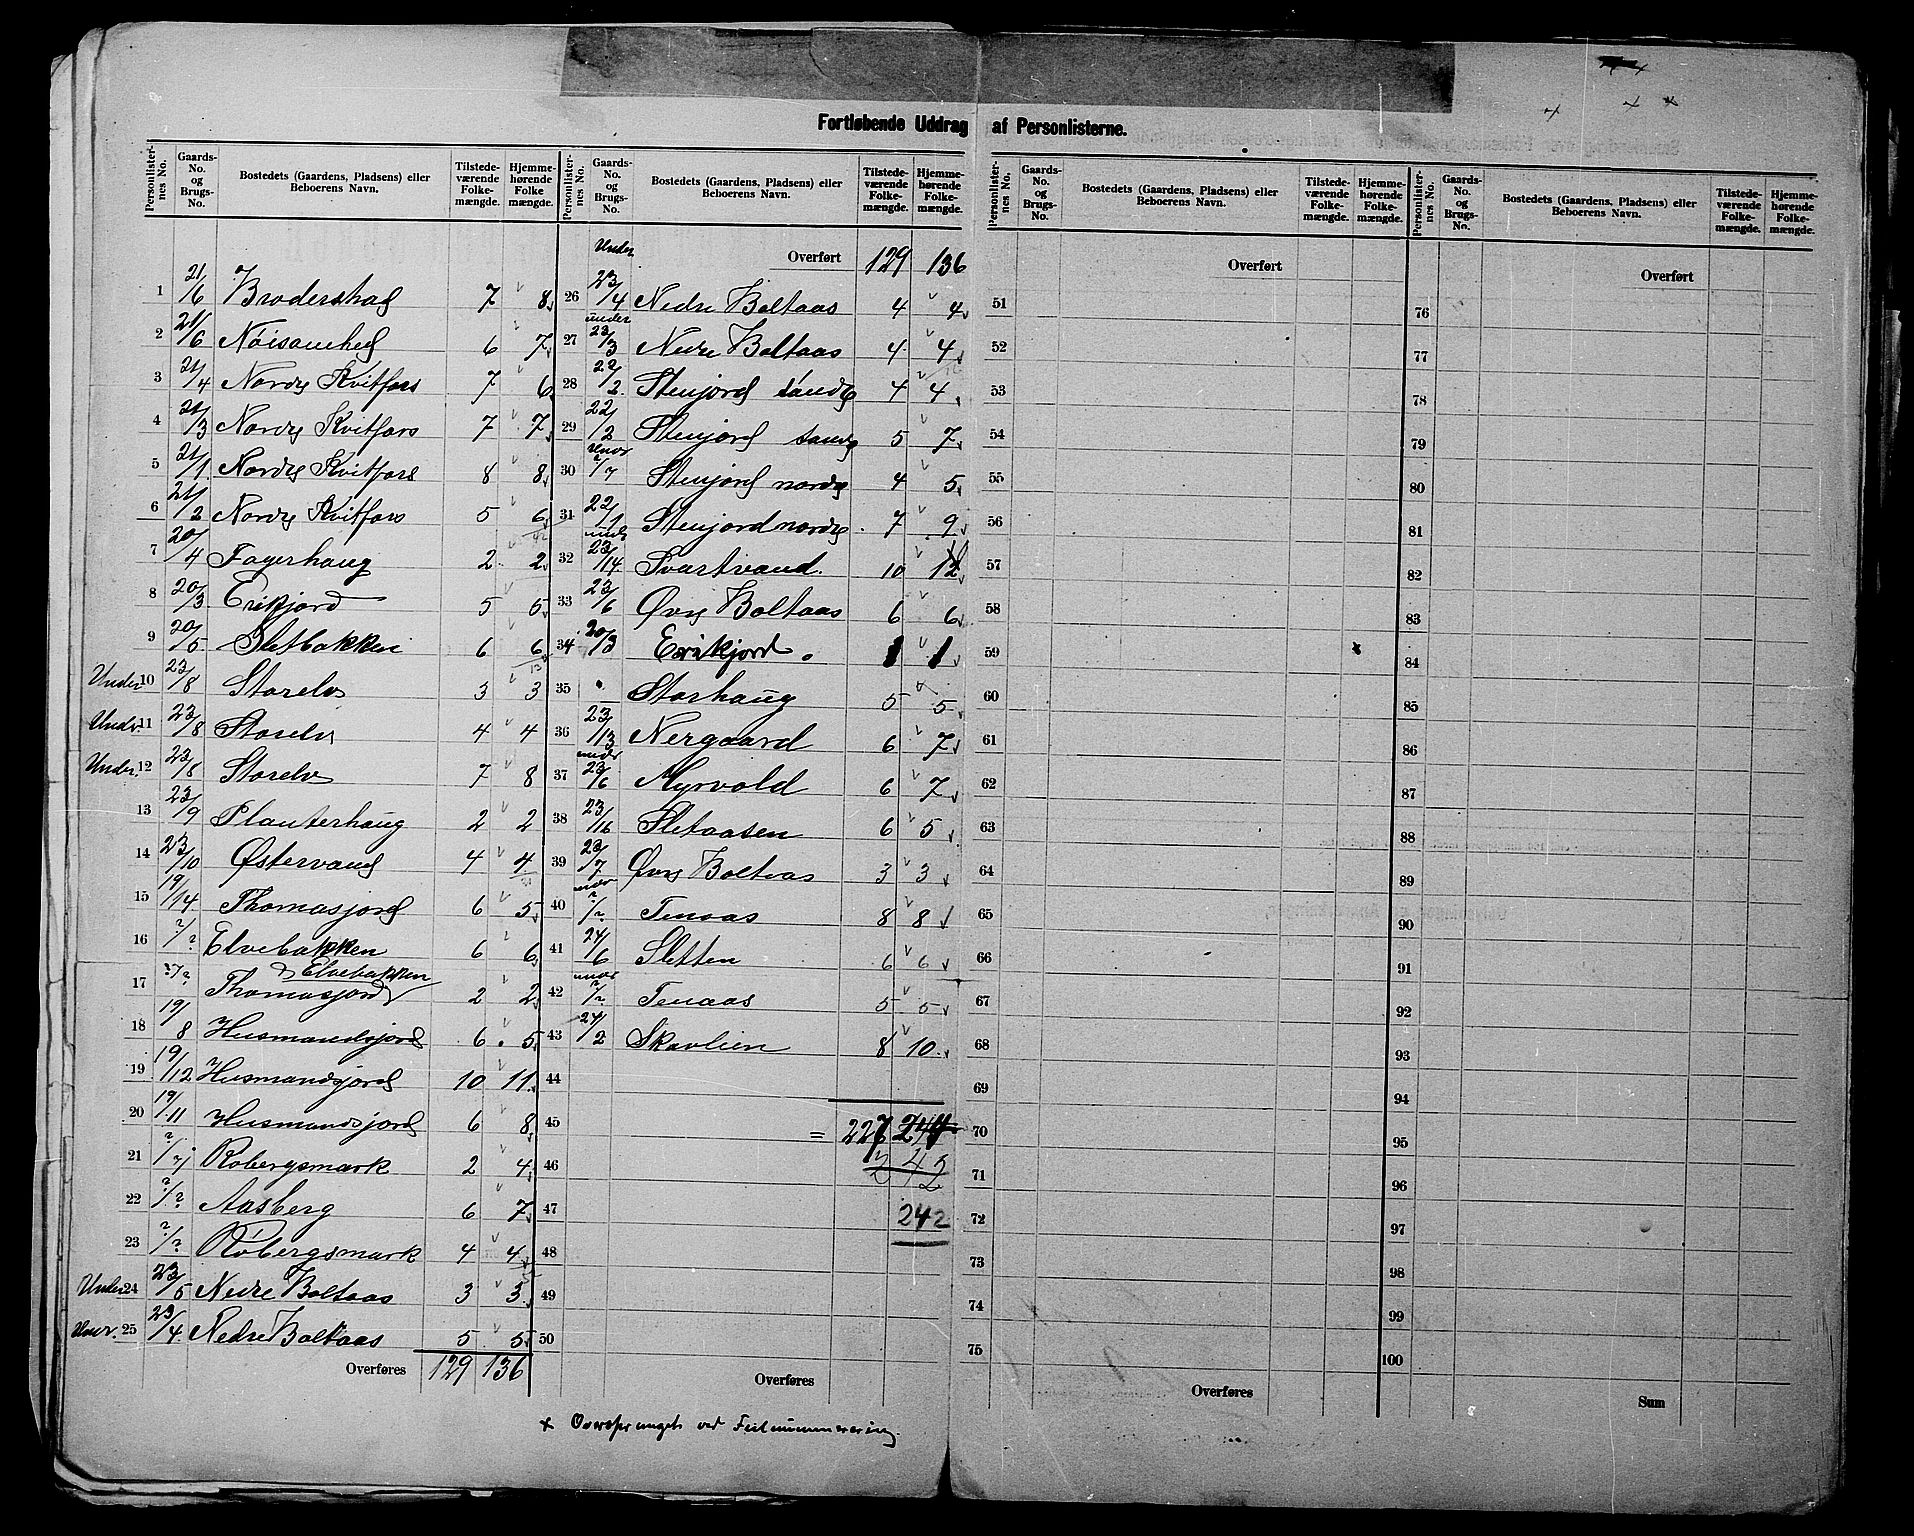 Fortløbende Uddrag af Personlisterne.
Personlister-nes No. Gaards-No. og Brugs-No. Bostedets (Gaardens, Pladsens) eller Beboerens Navn. Tilstede-værende Folke-mængde. Hjemme-hørende Folke mængde.
1 21/6 Brodershag 7 8
2 21/6 Nöisomhed 6 7
3 21/4 Nordre Kvitfors 7 6
4 21/3 Nordre Kvitfors 7 7
5 21/1 Nordre Kvitfors 8 8
6 21/2 Nordre Kvitfors 5 6
7 20/4 Fagerhaug 2 2
8 20/3 Erikjord 5 5
9 20/5 Sletbakken 6 6
Under 10 23/8 Storelv 3 3
Under 11 23/8 Storelv 4 4
Under 12 23/8 Storelv 7 8
13 23/9 Planterhaug 2 2
14 23/10 Østervand 4 4
15 19/14 Thomasjord 6 5
16 ?/? Elvebakken 6 6
Elvebakken
17 ?/? Thomasjord 2 2
18 19/8 Husmandsjord 6 5
19 19/12 Husmandsjord 10 11
20 19/11 Husmandsjord 6 8
21 ?/? Robergsmark 2 4
22 ?/? Aasberg 6 7
23 ?/? Robergsmark 4 4
Under 24 23/5 Nedre Boltaas 3 3
Under 25 23/4 Nedre Boltaas 5 5
Overføres 129 136
Personlister-nes No. Gaards-No. og Brugs-No. Bostedets (Gaardens, Pladsens) eller Beboerens Navn. Tilstede-værende Folke-mængde. Hjemme-hørende Folke-mængde.
Overført 129 136
26 Under 23/4 Nedre Boltaas 4 4
27 under 23/3 Nedre Boltaas 4 4
28 22/2 Stenjord söndre 4 4
29 22/2 Stenjord söndre 5 7
30 Under ?/? Stenjord nordre 4 5
31 22/1 Stenjord nordre 7 9
32 under 23/14 Svartvand 10 12
33 23/6 Øvre Boltaas 6 6
34 20/3 Erikjord 1 1
35 Storhaug 5 5
36 23/13 Nergaard 6 7
37 under 23/6 Myrvold 6 7
38 23/16 Sletaasen 6 5
39 23/7 Øvre Boltaas 3 3
40 under ?/? Tenaas 8 8
41 24/6 Sletten 6 6
42 under ?/? Tenaas 5 5
43 24/2 Skavlien 8 10
44
45 = 227 244
46 242
47 242
48
49
50
Overføres
× Oversprunget ved Feilnummerering.
Personlister-nes No. Gaards-No. og Brugs-No. Bostedets (Gaardens, Pladsens) eller Beboerens Navn. Tilstede-værende Folke-mængde. Hjemme-hørende Folke-mængde.
Overført
51
52
53
54
55
56
57
58
59
60
61
62
63
64
65
66
67
68
69
70
71
72
73
74
75
Overføres
Personlister-nes No. Gaards-No. og Brugs-No. Bostedets (Gaardens, Pladsens) eller Beboerens Navn. Tilstede-værende Folke-mængde. Hjemme-hørende Folke-mængde.
Overført
76
77
78
79
80
81
82
83
84
85
86
87
88
89
90
91
92
93
94
95
96
97
98
99
100
Sum